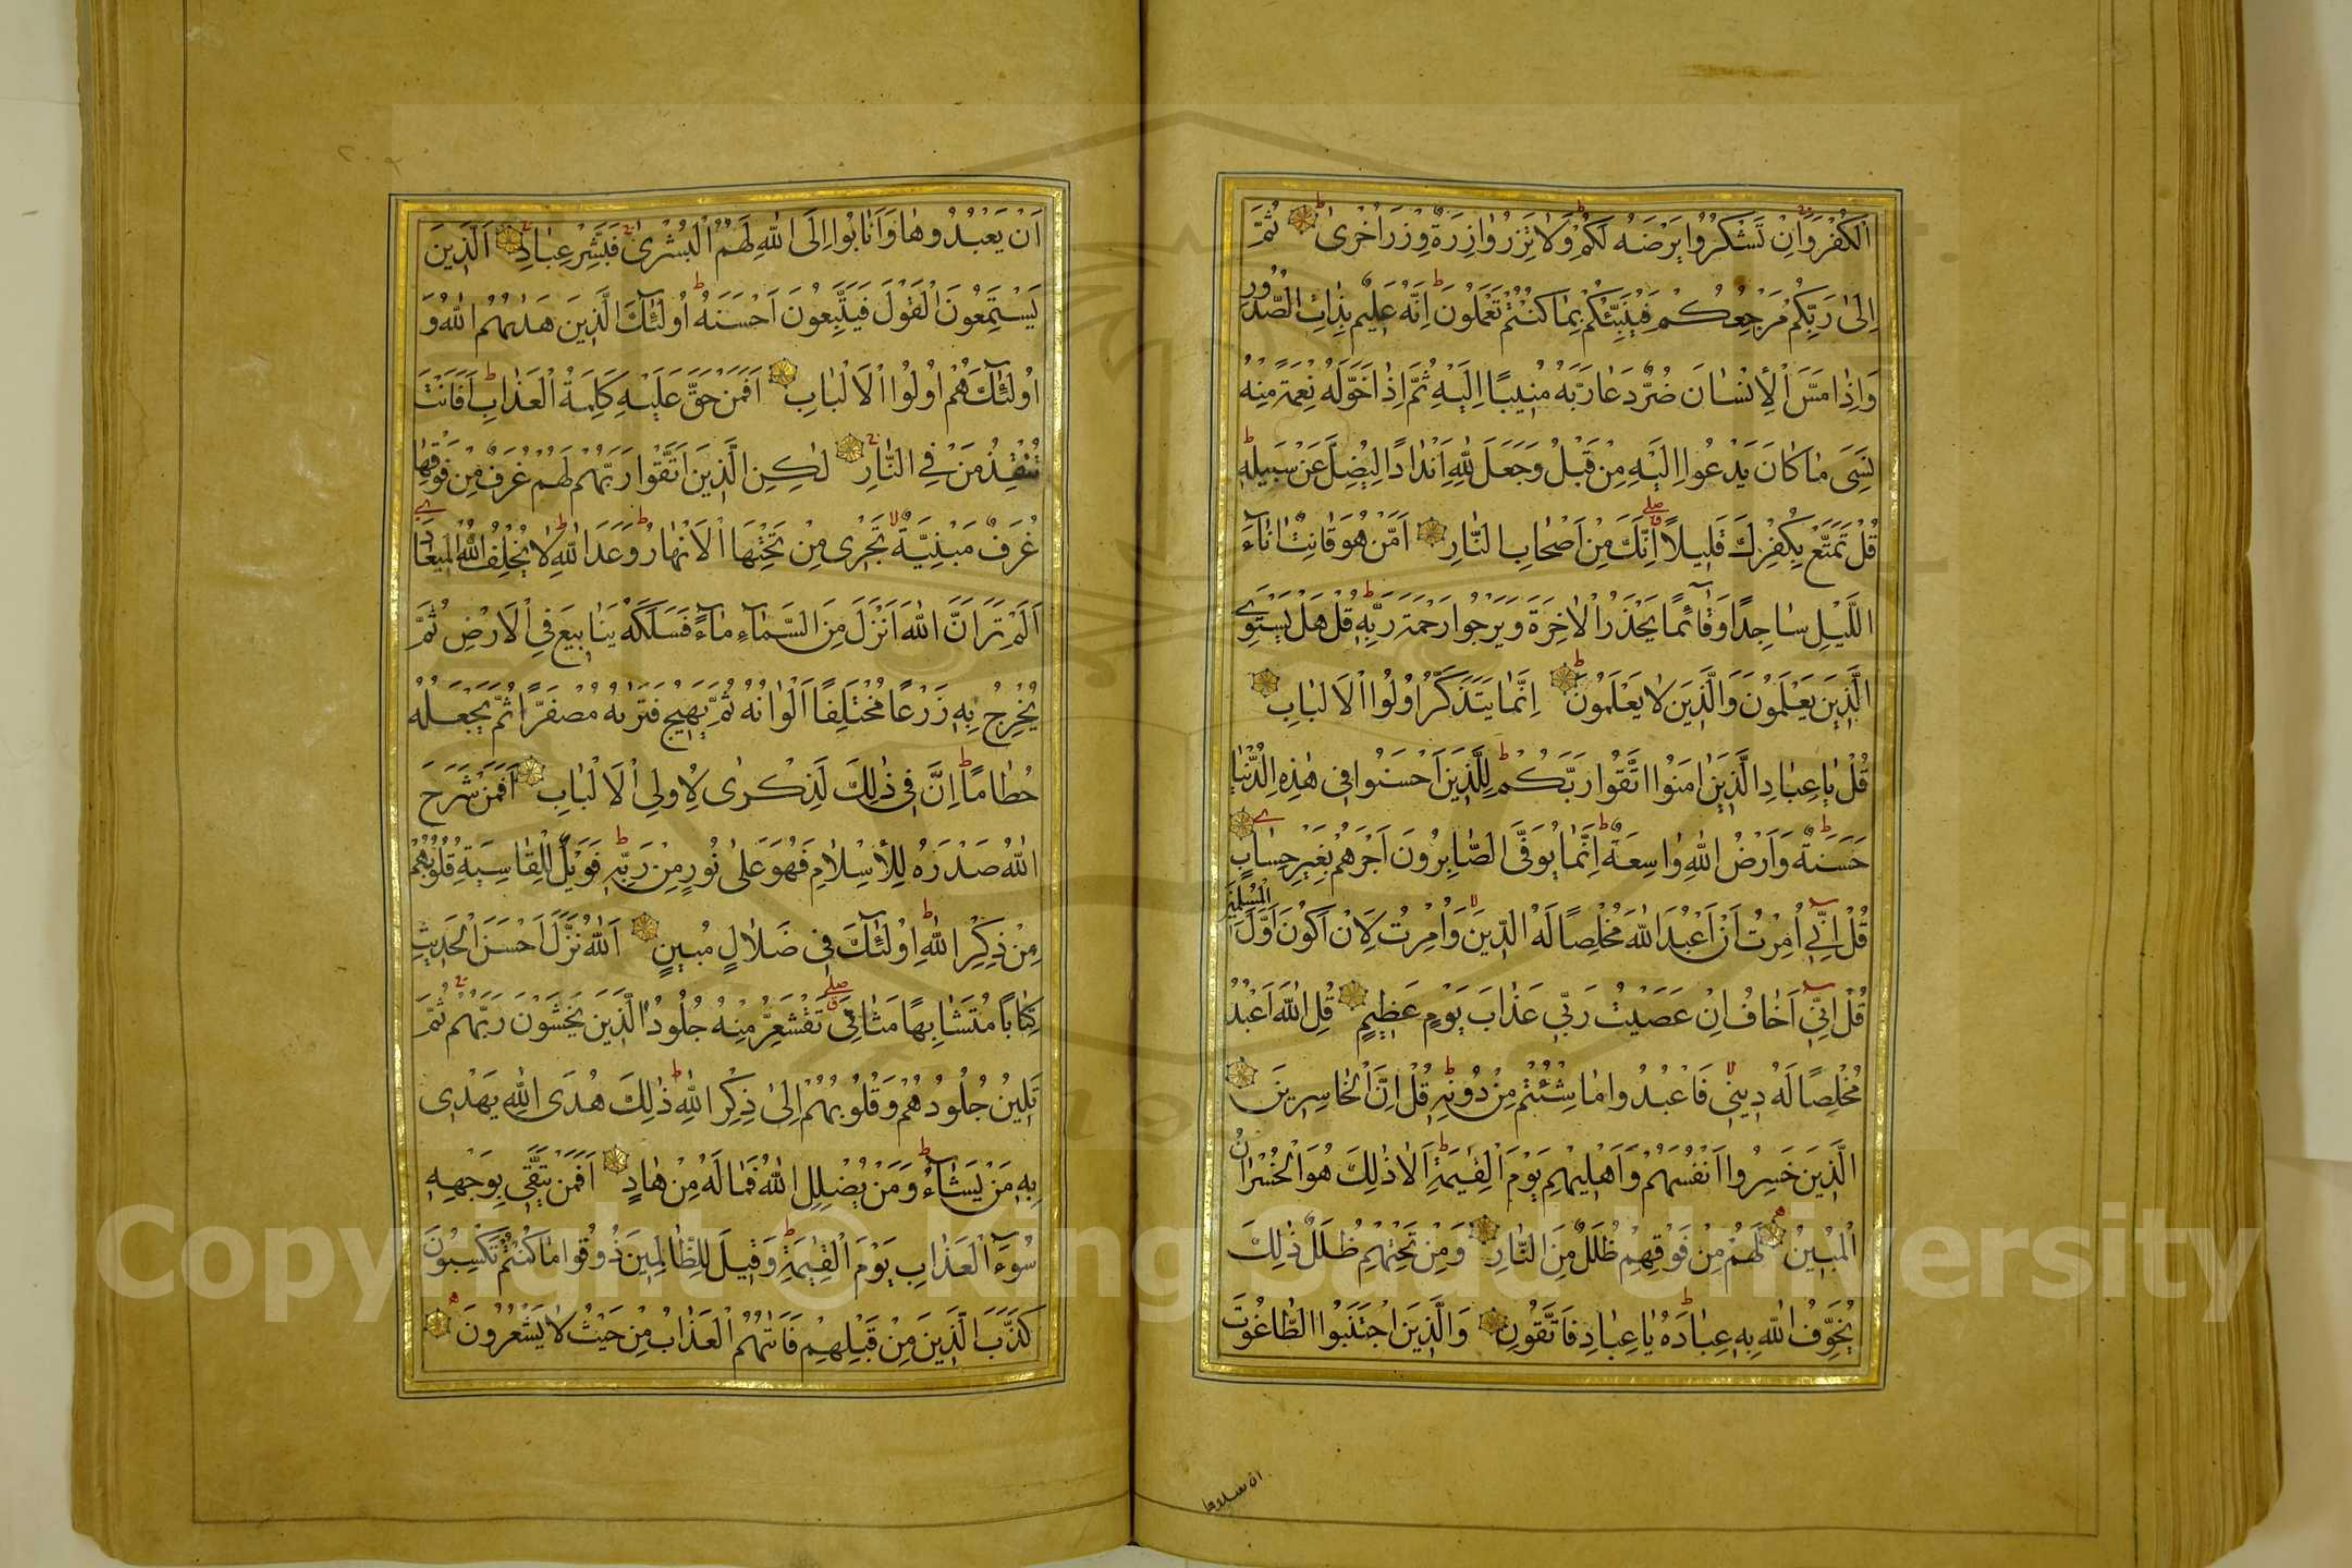 الْكُفْرَ وَاِنْ تَشْكُرُوا يَرْضَهُ لَكُمْ وَلَا تَزِرُ وَازِرَةٌ وِزْرَ اُخْرٰى ثُمَّ
اِلٰى رَبِّكُمْ مَرْجِعُكُمْ فَيُنَبِّئُكُمْ بِمَا كُنْتُمْ تَعْمَلُونَ اِنَّهُ عَلِيمٌ بِذَاتِ الصُّدُورِ
وَاِذَا مَسَّ الْاِنْسَانَ ضُرٌّ دَعَا رَبَّهُ مُنِيبًا اِلَيْهِ ثُمَّ اِذَا خَوَّلَهُ نِعْمَةً مِنْهُ
نَسِيَ مَا كَانَ يَدْعُوا اِلَيْهِ مِنْ قَبْلُ وَجَعَلَ لِلّٰهِ اَنْدَادًا لِيُضِلَّ عَنْ سَبِيلِهِ
قُلْ تَمَتَّعْ بِكُفْرِكَ قَلِيلًا اِنَّكَ مِنْ اَصْحَابِ النَّارِ اَمَّنْ هُوَ قَانِتٌ اٰنَاءَ
اللَّيْلِ سَاجِدًا وَقَائِمًا يَحْذَرُ الْاٰخِرَةَ وَيَرْجُوا رَحْمَةَ رَبِّهِ قُلْ هَلْ يَسْتَوِي
الَّذِينَ يَعْلَمُونَ وَالَّذِينَ لَا يَعْلَمُونَ اِنَّمَا يَتَذَكَّرُ اُولُوا الْاَلْبَابِ
قُلْ يَا عِبَادِ الَّذِينَ اٰمَنُوا اتَّقُوا رَبَّكُمْ لِلَّذِينَ اَحْسَنُوا فِي هٰذِهِ الدُّنْيَا
حَسَنَةٌ وَاَرْضُ اللّٰهِ وَاسِعَةٌ اِنَّمَا يُوَفَّى الصَّابِرُونَ اَجْرَهُمْ بِغَيْرِ حِسَابٍ
قُلْ اِنِّي اُمِرْتُ اَنْ اَعْبُدَ اللّٰهَ مُخْلِصًا لَهُ الدِّينَ وَاُمِرْتُ لِاَنْ اَكُونَ اَوَّلَ الْمُسْلِمِينَ
قُلْ اِنِّي اَخَافُ اِنْ عَصَيْتُ رَبِّي عَذَابَ يَوْمٍ عَظِيمٍ قُلِ اللّٰهَ اَعْبُدُ
مُخْلِصًا لَهُ دِينِي فَاعْبُدُوا مَا شِئْتُمْ مِنْ دُونِهِ قُلْ اِنَّ الْخَاسِرِينَ
الَّذِينَ خَسِرُوا اَنْفُسَهُمْ وَاَهْلِيهِمْ يَوْمَ الْقِيٰمَةِ اَلَا ذٰلِكَ هُوَ الْخُسْرَانُ
الْمُبِينُ لَهُمْ مِنْ فَوْقِهِمْ ظُلَلٌ مِنَ النَّارِ وَمِنْ تَحْتِهِمْ ظُلَلٌ ذٰلِكَ
يُخَوِّفُ اللّٰهُ بِهِ عِبَادَهُ يَا عِبَادِ فَاتَّقُونِ وَالَّذِينَ اجْتَنَبُوا الطَّاغُوتَ
اَنْ يَعْبُدُوهَا وَاَنَابُوا اِلَى اللّٰهِ لَهُمُ الْبُشْرٰى فَبَشِّرْ عِبَادِ اَلَّذِينَ
يَسْتَمِعُونَ الْقَوْلَ فَيَتَّبِعُونَ اَحْسَنَهُ اُولٰئِكَ الَّذِينَ هَدٰيهُمُ اللّٰهُ وَ
اُولٰئِكَ هُمْ اُولُوا الْاَلْبَابِ اَفَمَنْ حَقَّ عَلَيْهِ كَلِمَةُ الْعَذَابِ اَفَاَنْتَ
تُنْقِذُ مَنْ فِي النَّارِ لٰكِنِ الَّذِينَ اتَّقَوْا رَبَّهُمْ لَهُمْ غُرَفٌ مِنْ فَوْقِهَا
غُرَفٌ مَبْنِيَّةٌ تَجْرِي مِنْ تَحْتِهَا الْاَنْهَارُ وَعْدَ اللّٰهِ لَا يُخْلِفُ اللّٰهُ الْمِيعَادَ
اَلَمْ تَرَ اَنَّ اللّٰهَ اَنْزَلَ مِنَ السَّمَاءِ مَاءً فَسَلَكَهُ يَنَابِيعَ فِي الْاَرْضِ ثُمَّ
يُخْرِجُ بِهِ زَرْعًا مُخْتَلِفًا اَلْوَانُهُ ثُمَّ يَهِيجُ فَتَرٰيهُ مُصْفَرًّا ثُمَّ يَجْعَلُهُ
حُطَامًا اِنَّ فِي ذٰلِكَ لَذِكْرٰى لِاُولِي الْاَلْبَابِ اَفَمَنْ شَرَحَ
اللّٰهُ صَدْرَهُ لِلْاِسْلَامِ فَهُوَ عَلٰى نُورٍ مِنْ رَبِّهِ فَوَيْلٌ لِلْقَاسِيَةِ قُلُوبُهُمْ
مِنْ ذِكْرِ اللّٰهِ اُولٰئِكَ فِي ضَلَالٍ مُبِينٍ اَللّٰهُ نَزَّلَ اَحْسَنَ الْحَدِيثِ
كِتَابًا مُتَشَابِهًا مَثَانِيَ تَقْشَعِرُّ مِنْهُ جُلُودُ الَّذِينَ يَخْشَوْنَ رَبَّهُمْ ثُمَّ
تَلِينُ جُلُودُهُمْ وَقُلُوبُهُمْ اِلٰى ذِكْرِ اللّٰهِ ذٰلِكَ هُدَى اللّٰهِ يَهْدِي
بِهِ مَنْ يَشَاءُ وَمَنْ يُضْلِلِ اللّٰهُ فَمَا لَهُ مِنْ هَادٍ اَفَمَنْ يَتَّقِي بِوَجْهِهِ
سُوءَ الْعَذَابِ يَوْمَ الْقِيٰمَةِ وَقِيلَ لِلظَّالِمِينَ ذُوقُوا مَا كُنْتُمْ تَكْسِبُونَ
كَذَّبَ الَّذِينَ مِنْ قَبْلِهِمْ فَاَتٰيهُمُ الْعَذَابُ مِنْ حَيْثُ لَا يَشْعُرُونَ
Copyright © King Saud University